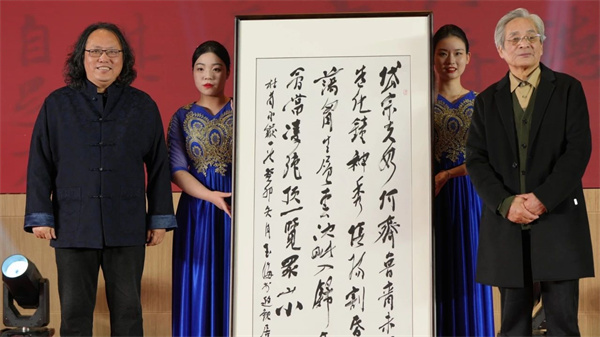 岱宗夫如何齊魯青未
造化鍾神秀陰陽割昏
蕩胸生層雲決眥入歸
會當凌絕頂一覽眾山小
杜甫望嶽一首癸卯冬月玉海
自